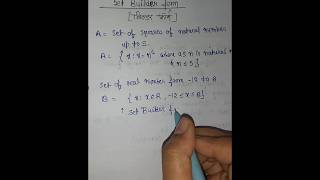 Set Builder form
[सेट बिल्डर फॉर्म]
A = Set of squares of natural numbers
up to 5.
A = { x : x = n², where as n is natural
& n ≤ 5}
Set of real number from -12 to 8
B = { x : x ∈ R, -12 ≤ x ≤ 8}
↑ Set Builder f